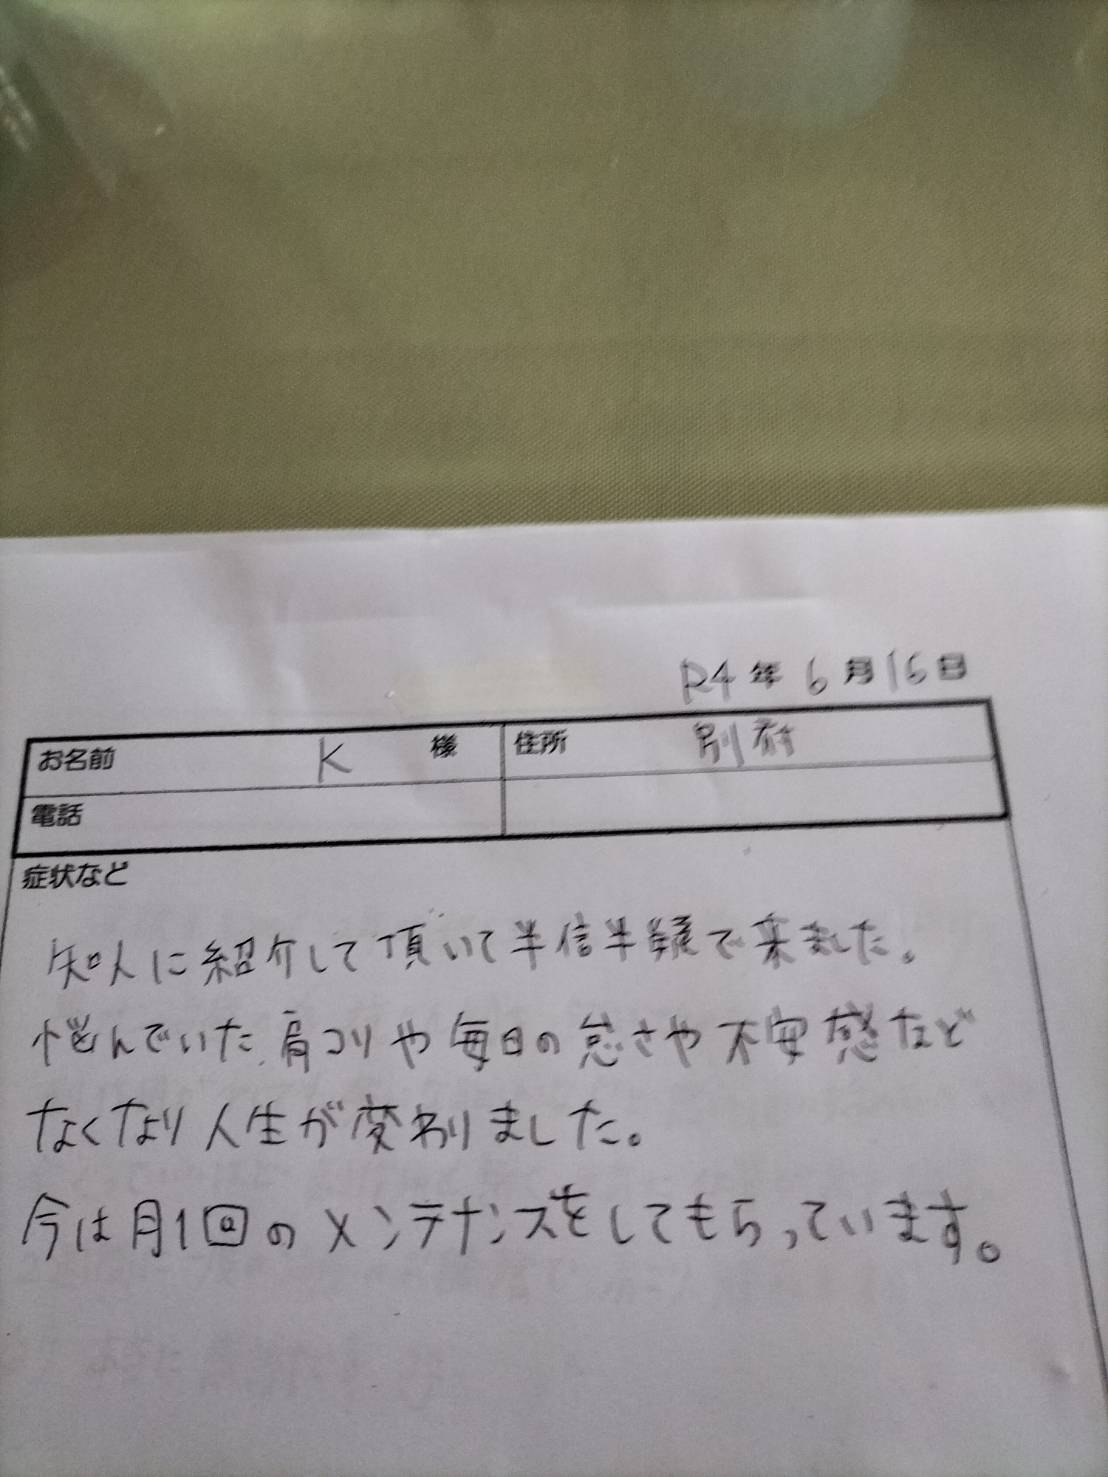 R4年 6月16日
お名前 K 様 住所 別府
電話
症状など
知人に紹介して頂いて半信半疑で来ました。
悩んでいた肩コリや毎日の怠さや不安感など
なくなり人生が変わりました。
今は月1回のメンテナンスをしてもらっています。